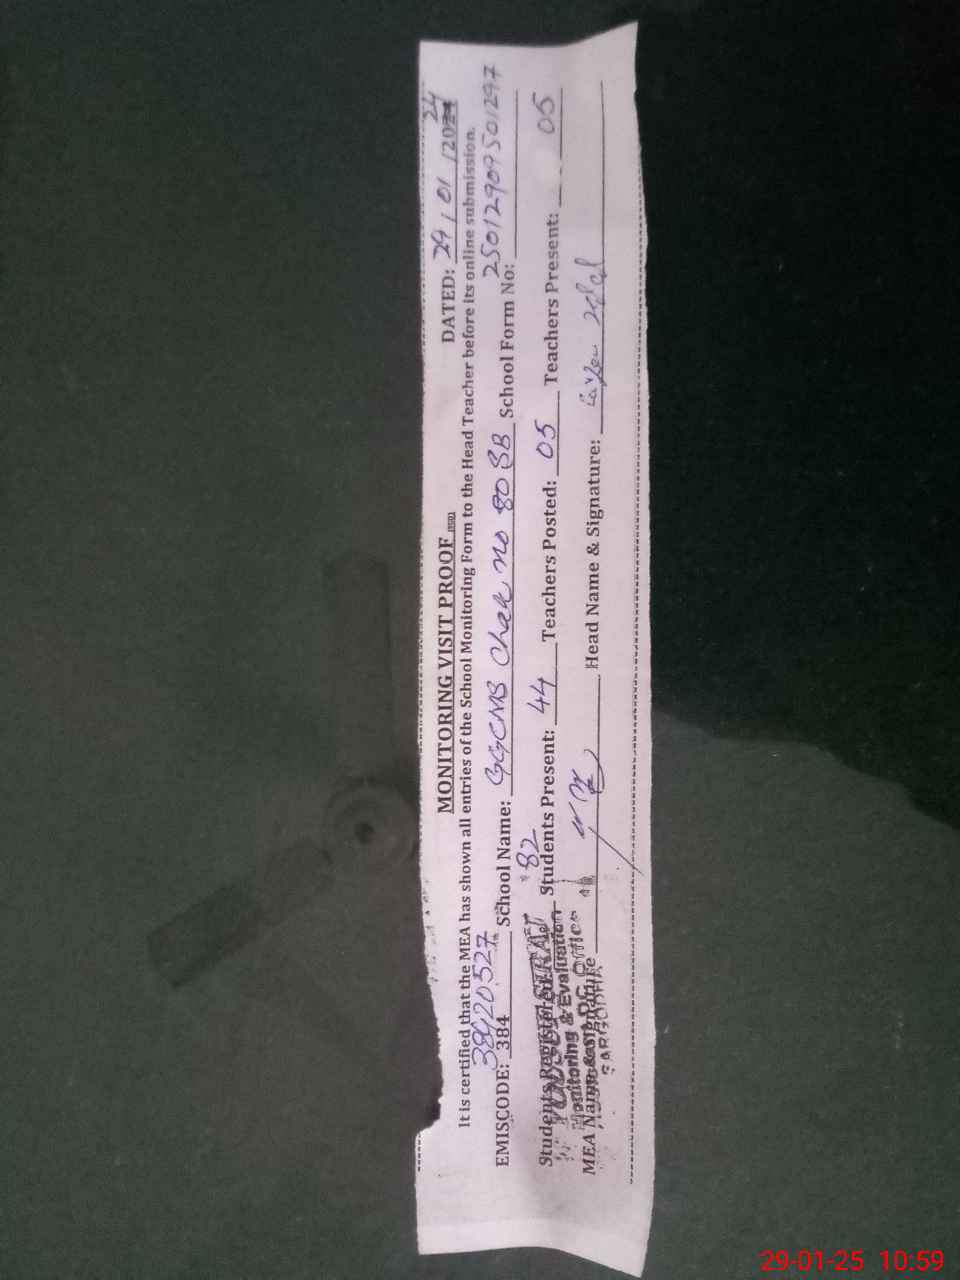 MONITORING VISIT PROOF DATED: 29/01/2024
It is certified that the MEA has shown all entries of the School Monitoring Form to the Head Teacher before its online submission.
38420527 25012909501297
EMISCODE: 384 School Name: GGCMS Chak no 80 SB School Form No:
82
Students Registered: Students Present: 44 Teachers Posted: 05 Teachers Present: 05
Monitoring & Evaluation
MEA Name & Signature Head Name & Signature:
DC Office
SARGODHA
29-01-25 10:59